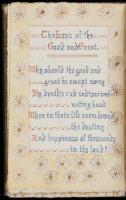 The Loss of the
Good and Great.
Why should the good and
great be swept away
By death's rude
eating hand
When in their life seem bound
the destiny
And happiness of thousands
in the land!